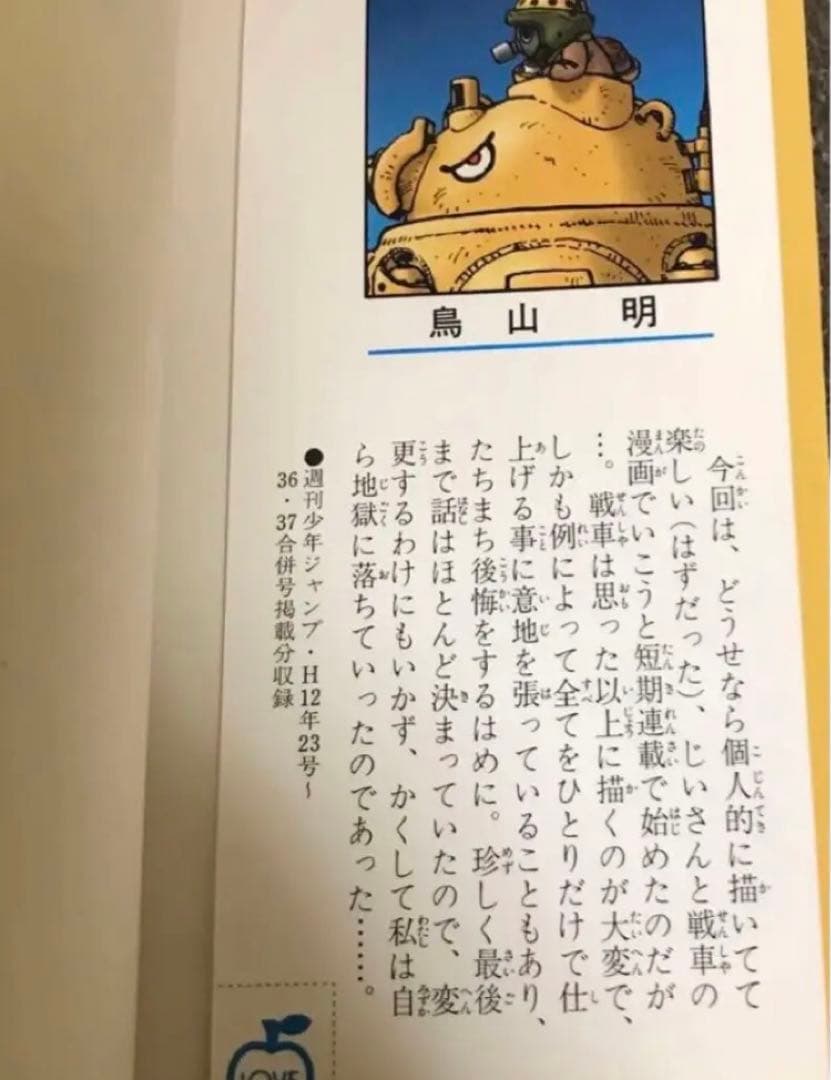 鳥山 明
今回は、どうせなら個人的に描いてて
楽しい(はずだった)、じいさんと戦車の
漫画でいこうと短期連載で始めたのだが
…。戦車は思った以上に描くのが大変で、
しかも例によって全てをひとりだけで仕
上げる事に意地を張っていることもあり、
たちまち後悔をするはめに。珍しく最後
まで話はほとんど決まっていたので、変
更するわけにもいかず、かくして私は自
ら地獄に落ちていったのであった………。
●週刊少年ジャンプ・H12年23号〜
36・37合併号掲載分収録
LOVE